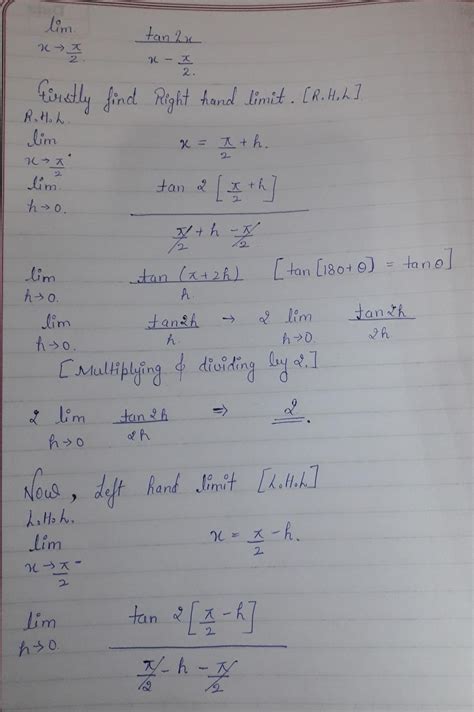 lim tan2x
x→π/2 x - π/2.
Firstly find Right hand limit. [R.H.L]
R.H.L.
lim x = π/2 + h.
x→π/2⁺
lim tan 2[π/2 + h]
h→0. π/2 + h - π/2
lim tan (π+2h) [tan[180+θ) = tanθ]
h→0. h
lim tan2h → 2 lim tan2h
h→0. h. h→0. 2h
[Multiplying & dividing by 2.]
2 lim tan2h ⇒ 2.
h→0 2h
Now, Left hand limit [L.H.L]
L.H.L.
lim x = π/2 - h.
x→π/2⁻
lim tan 2[π/2 - h]
h→0. π/2 - h - π/2